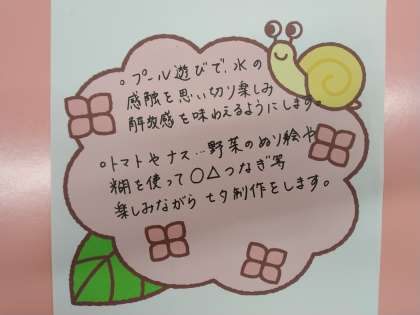 。プール遊びで、水の
感触を思い切り楽しみ
解放感を味わえるようにします。
。トマトやナス…野菜のぬり絵や
糊を使って○△つなぎ等
楽しみながら七夕制作をします。